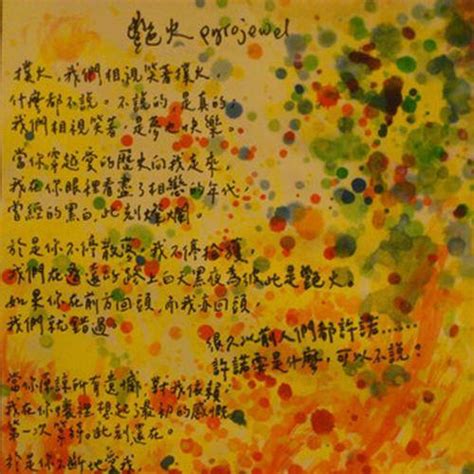 艷火 pyrojewel
撲火，我們相視笑著撲火，
什麼都不說。不說的，是真的，
我們相視笑著，是夢也快樂。
當你穿越愛的歷史向我走來，
我在你眼裡看盡了相戀的年代，
曾經的黑白，此刻燦爛。
於是你不停散落，我不停拾獲
我們在遙遠的路上白天黑夜為彼此是艷火。
如果你在前方回頭，而我亦回頭，
我們就錯過。
很久以前人們都許諾……
許諾要是什麼，可以不說？
當你原諒所有遺憾，對我依賴，
我在你懷裡想起了最初的感慨
第一次等待，此刻還在。
於是你不斷地愛我，